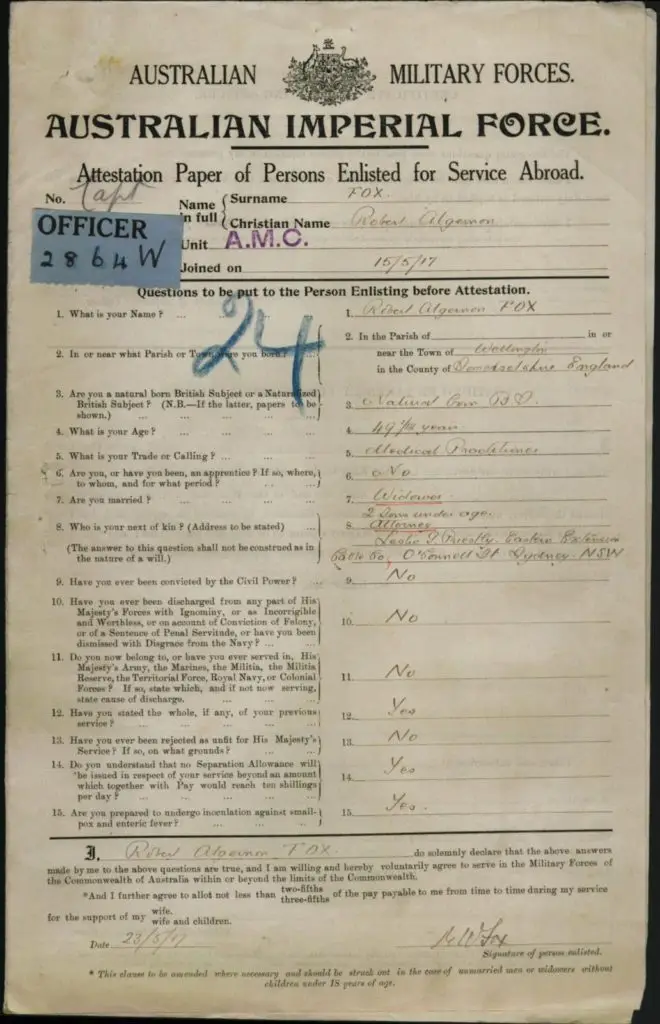 AUSTRALIAN MILITARY FORCES.
AUSTRALIAN IMPERIAL FORCE.
Attestation Paper of Persons Enlisted for Service Abroad.
No. Capt
Name in full { Surname FOX.
Christian Name Robert Algernon
OFFICER
2864W
Unit A.M.C.
Joined on 15/5/17
Questions to be put to the Person Enlisting before Attestation.
24
1. What is your Name? ... ... 1. Robert Algernon FOX
2. In or near what Parish or Town were you born? ... 2. In the Parish of in or
near the Town of Wellington
in the County of England
3. Are you a natural born British Subject or a Naturalized
British Subject? (N.B.—If the latter, papers to be
shown.) ... ... ... ... 3. Natural born B.S.
4. What is your Age? ... ... ... ... 4. 49 years
5. What is your Trade or Calling? ... ... ... 5. Medical Practitioner
6. Are you, or have you been, an apprentice? If so, where,
to whom, and for what period? ... ... 6. No
7. Are you married? ... ... ... ... 7. Widower
2 Sons under age.
8. Who is your next of kin? (Address to be stated) ... 8. Attorney
Leslie J. Priestly. Eastern Extension
(The answer to this question shall not be construed as in
the nature of a will.) Cable Co, O'Connell St. Sydney. NSW
9. Have you ever been convicted by the Civil Power? ... 9. No
10. Have you ever been discharged from any part of His
Majesty's Forces with Ignominy, or as Incorrigible
and Worthless, or on account of Conviction of Felony,
or of a Sentence of Penal Servitude, or have you been
dismissed with Disgrace from the Navy? ... ... 10. No
11. Do you now belong to, or have you ever served in, His
Majesty's Army, the Marines, the Militia, the Militia
Reserve, the Territorial Force, Royal Navy, or Colonial
Forces? If so, state which, and if not now serving,
state cause of discharge. ... ... ... 11. No
12. Have you stated the whole, if any, of your previous
service? ... ... ... ... 12. Yes
13. Have you ever been rejected as unfit for His Majesty's
Service? If so, on what grounds? ... ... 13. No
14. Do you understand that no Separation Allowance will
be issued in respect of your service beyond an amount
which together with Pay would reach ten shillings
per day? ... ... ... ... 14. Yes
15. Are you prepared to undergo inoculation against small-
pox and enteric fever? ... ... ... 15. Yes.
I, Robert Algernon FOX. do solemnly declare that the above answers
made by me to the above questions are true, and I am willing and hereby voluntarily agree to serve in the Military Forces of
the Commonwealth of Australia within or beyond the limits of the Commonwealth.
*And I further agree to allot not less than two-fifths three-fifths of the pay payable to me from time to time during my service
for the support of my wife. wife and children.
Date 23/5/17
Fox
Signature of person enlisted.
* This clause to be amended where necessary and should be struck out in the case of unmarried men or widowers without
children under 18 years of age.